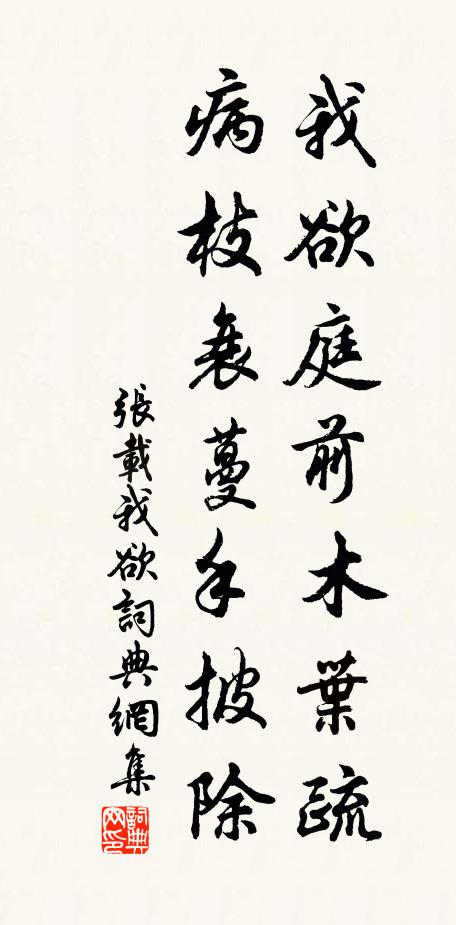 我欲庭前木葉疏
病枝衰蔓手披除
張載我欲詞典網集
詞典网印